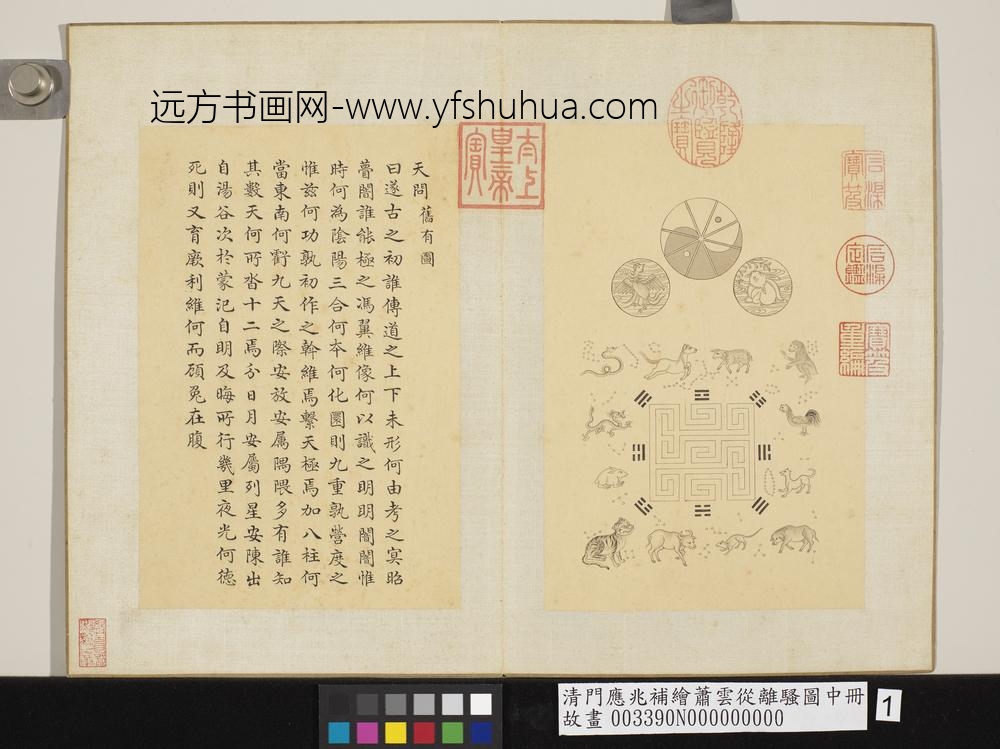 远方书画网-www.yfshuhua.com
乾隆御覽之寶
太上皇帝之寶
石渠寶笈
石渠定鑑
寶笈重編
天問 舊有圖
曰遂古之初誰傳道之上下未形何由考之冥昭
瞢闇誰能極之馮翼維像何以識之明明闇闇惟
時何為陰陽三合何本何化圜則九重孰營度之
惟茲何功孰初作之斡維焉繫天極焉加八柱何
當東南何虧九天之際安放安屬隅隈多有誰知
其數天何所沓十二焉分日月安屬列星安陳出
自湯谷次於蒙汜自明及晦所行幾里夜光何德
死則又育厥利維何而顧兔在腹
清門應兆補繪蕭雲從離騷圖中冊
故畫 003390N000000000
1